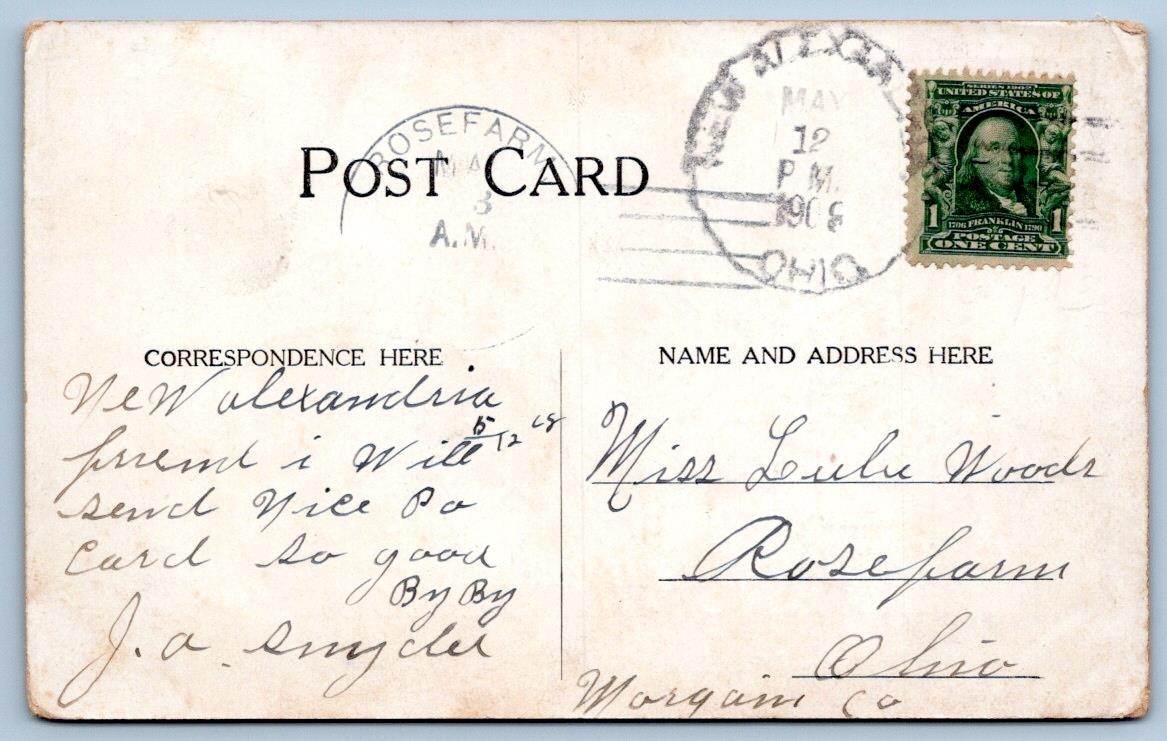 POST CARD
ROSEFARM
MAY
A.M.
NEW ALEXA
MAY
12
P.M.
1908
OHIO
SERIES 1902
UNITED STATES OF
AMERICA
1 1
1706 FRANKLIN 1790
POSTAGE
ONE CENT
CORRESPONDENCE HERE
New alexandria
5/12
friend i Will
send Nice Po
Card so good
By By
J. a. Snyder
NAME AND ADDRESS HERE
Miss Lulu Woods
Rosefarm
Ohio
Morgain Co